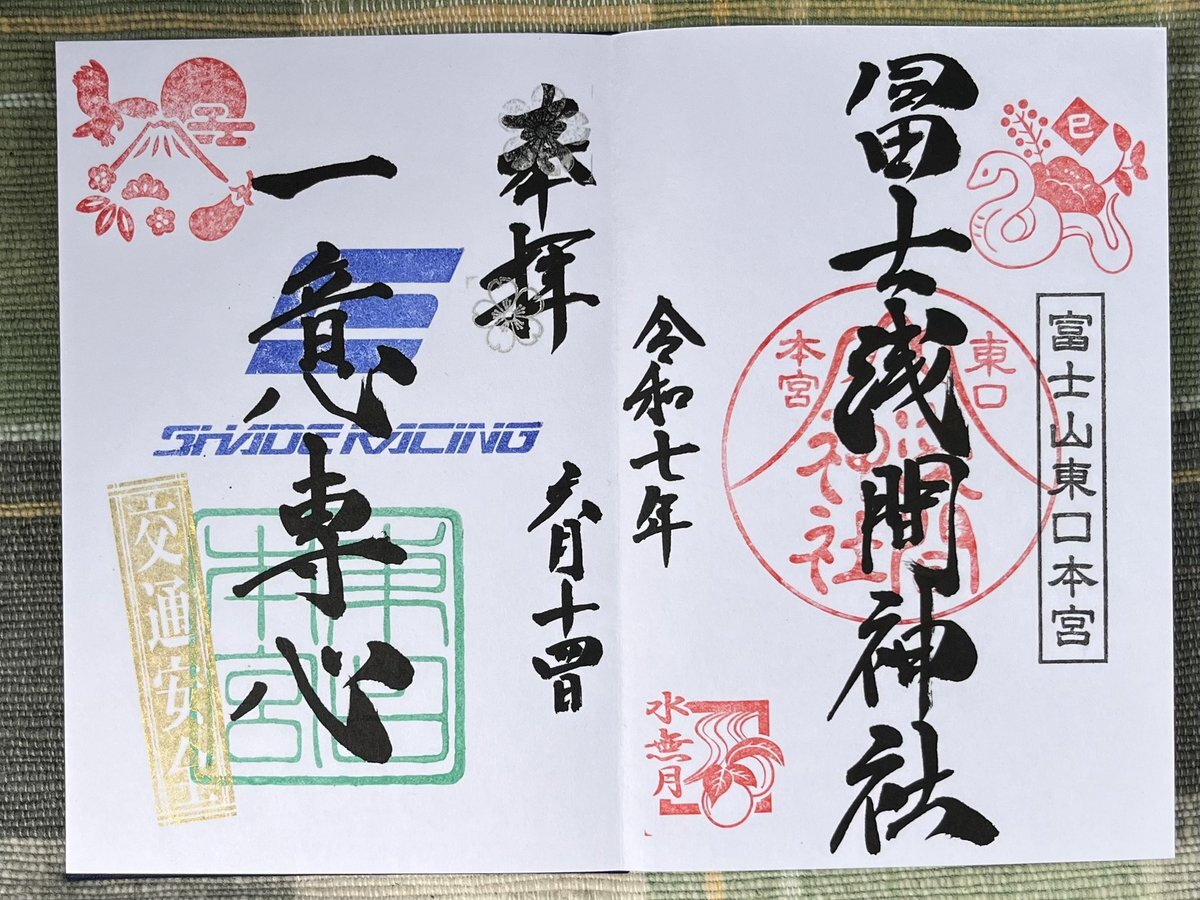 巳
富士山東口本宮
冨士浅間神社
東口
本宮
水無月
令和七年
六月十四日
奉拝
一意専心
SHADE RACING
東口
本宮
交通安全